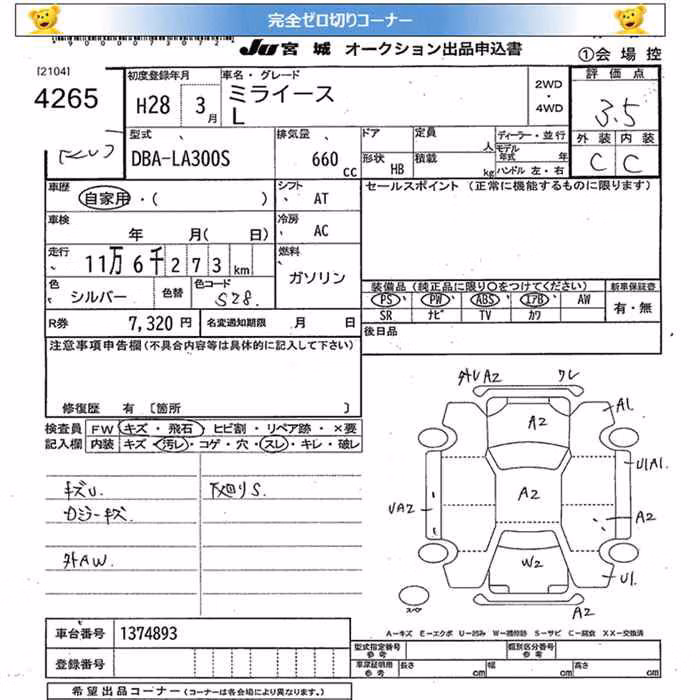 完全ゼロ切りコーナー
JU 宮城 オークション出品申込書
①会場控
[2104]
4265
初度登録年月
H28 3月
車名・グレード
ミライース
L
2WD
・
4WD
評価点
3.5
外装 内装
C C
型式
DBA-LA300S
排気量
660 cc
ドア
形状 HB
定員 人
積載 kg
ディーラー・並行
モデル年式 年
ハンドル 左・右
車歴
自家用・( )
シフト
AT
セールスポイント (正常に機能するものに限ります)
車検
年 月( 日)
冷房
AC
走行
11万 6千 2 7 3 km
燃料
ガソリン
色
シルバー
色替
色コード
S28.
装備品(純正品に限り○をつけてください)
新車保証書
PS PW ABS エアB AW
有・無
SR ナビ TV カワ
R券 7,320円
名変通知期限 月 日
後日品
注意事項申告欄(不具合内容等は具体的に記入して下さい)
修復歴 有 [箇所 ]
検査員記入欄
FW キズ・飛石・ヒビ割・リペア跡・×要
内装 キズ・汚レ・コゲ・穴・スレ・キレ・破レ
キズU.
下廻りS.
ロジーキズ
外AW.
外U A2
ワレ
A1.
A2
U1A1.
UA2
A2
A2
W2
U1.
スペア
A2
A-キズ E-エクボ U-凹み W-補修跡 S-サビ C-腐食 XX-交換済
車台番号 1374893
型式指定番号 参考
類別区分番号 参考
登録番号
車庫証明用 参考
長さ cm 幅 cm 高さ cm
希望出品コーナー (コーナーは各会場により異なります。)